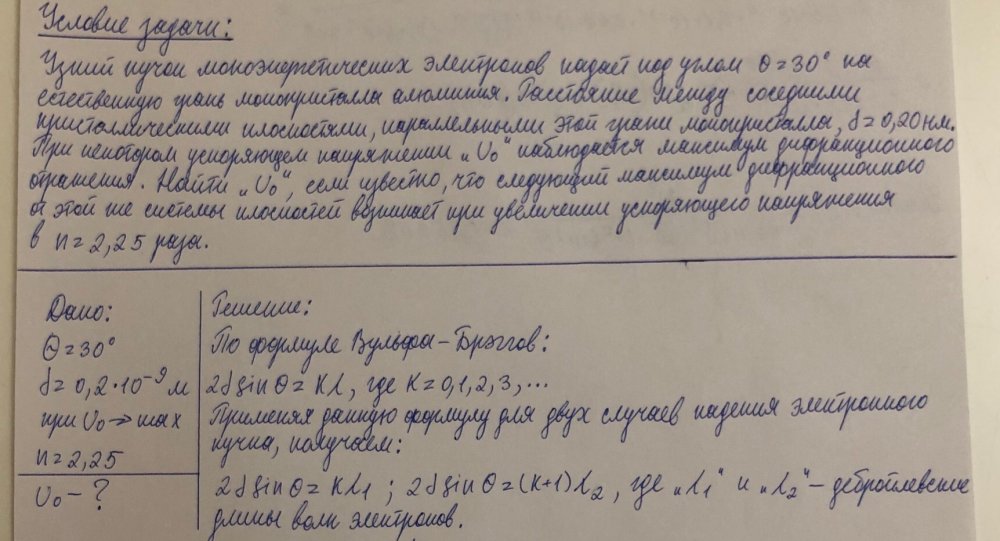 Условие задачи:
Узкий пучок моноэнергетических электронов падает под углом θ=30° на
естественную грань монокристалла алюминия. Расстояние между соседними
кристаллическими плоскостями, параллельными этой грани монокристалла, d=0,20нм.
При некотором ускоряющем напряжении „U₀" наблюдается максимум дифракционного
отражения. Найти „U₀", если известно, что следующий максимум дифракционного
от этой же системы плоскостей возникает при увеличении ускоряющего напряжения
в n=2,25 раза.
Дано:
θ=30°
d=0,2·10⁻⁹м
при U₀→max
n=2,25
U₀-?
Решение:
По формуле Вульфа-Брэггов:
2d sin θ=Kλ, где K=0,1,2,3,...
Применяя данную формулу для двух случаев падения электронного
пучка, получаем:
2d sin θ=Kλ₁; 2d sin θ=(K+1)λ₂, где „λ₁" и „λ₂"-дебройлевские
длины волн электронов.